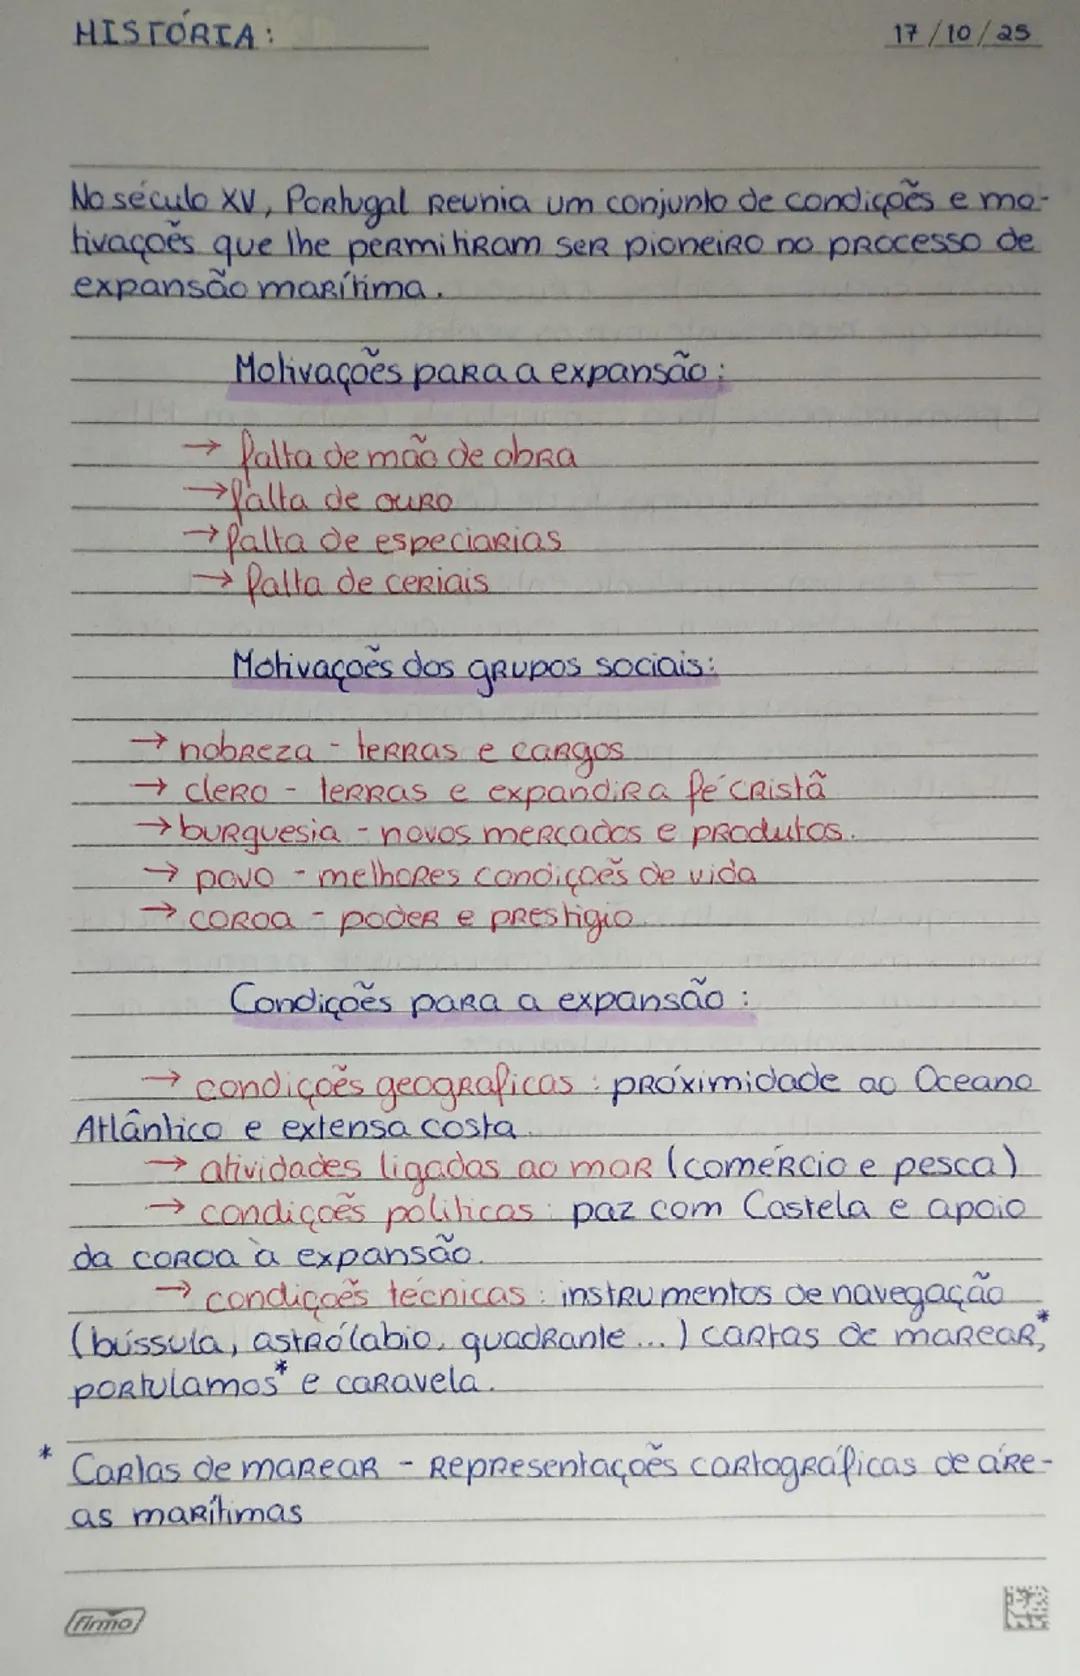 HISTÓRIA:
17/10/25
No século XV, Portugal reunia um conjunto de condições e mo-
tivações que lhe permitiram ser pioneiro no processo de
expansão marítima.
Motivações para a expansão:
→ falta de mão de obra
→ falta de ouro
→ falta de especiarias
→ falta de ceriais
Motivações dos grupos sociais:
→ nobreza - terras e cargos
→ clero - terras e expandir a fé cristã
→ burguesia - novos mercados e produtos.
→ povo - melhores condições de vida
→ coroa - poder e prestigio
Condições para a expansão:
→ condições geograficas: próximidade ao Oceano
Atlântico e extensa costa.
→ atividades ligadas ao mar (comércio e pesca)
→ condições politicas: paz com Castela e apoio
da coroa à expansão.
→ condições técnicas: instrumentos de navegação
(bússula, astrólabio, quadrante...) cartas de marear*,
portulamos* e caravela.
* Cartas de marear - Representações cartográficas de áre-
as marítimas
firmo